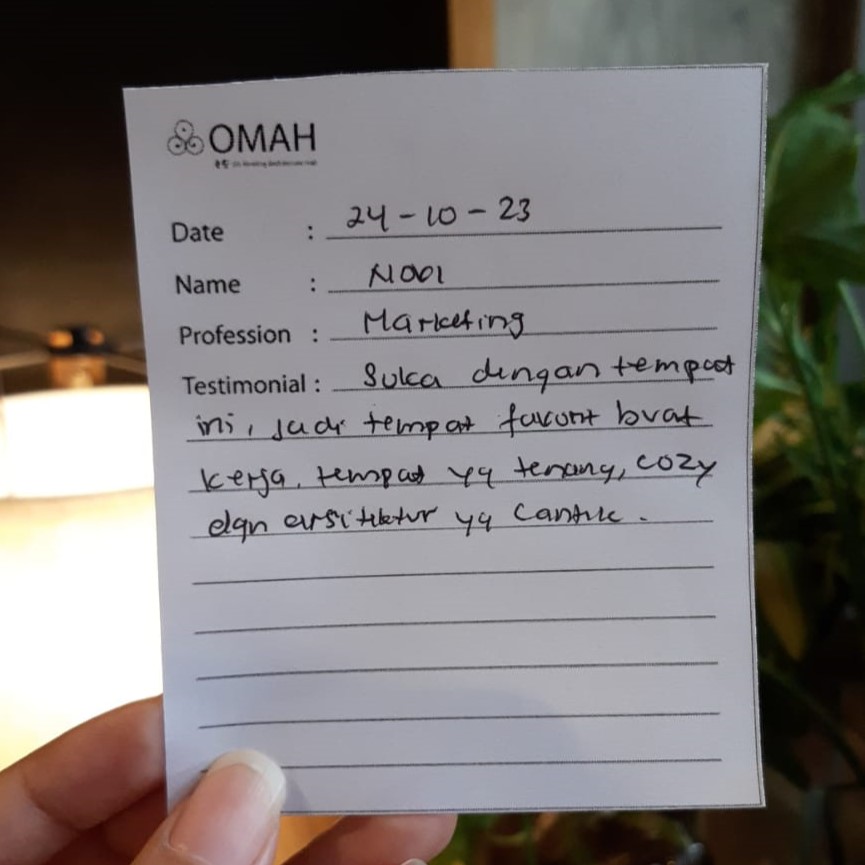 OMAH
Date : 24 - 10 - 23
Name :
Profession : Marketing
Testimonial : Suka dengan tempat
ini, jadi tempat favorit buat
kerja. tempat yg tenang, cozy
dgn arsitektur yg cantik.